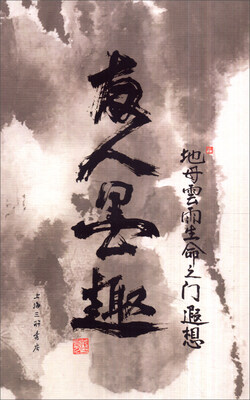 友人墨趣
地母雲雨生命之门遐想
上海三联书店